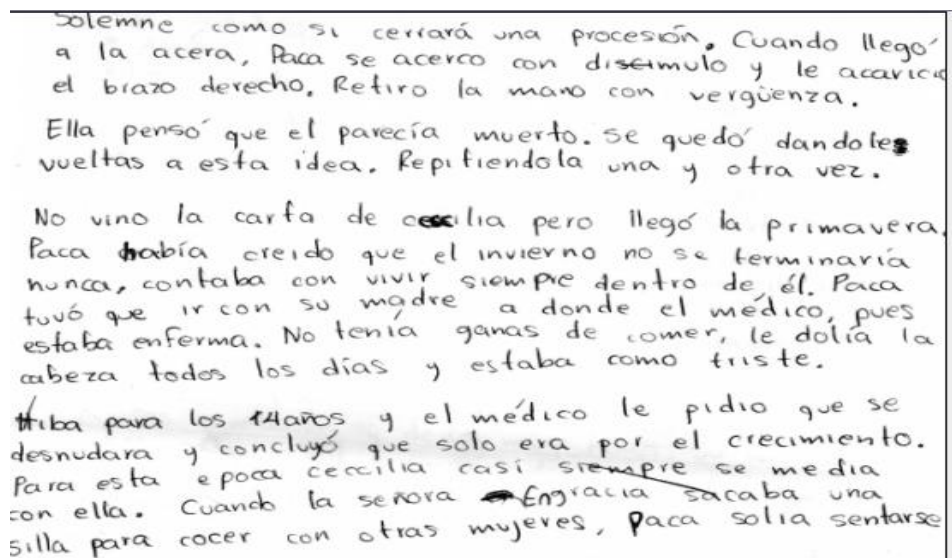 Solemne como si cerrará una procesión. Cuando llegó
a la acera, Paca se acerco con disimulo y le acarició
el brazo derecho. Retiro la mano con vergüenza.
Ella pensó que el parecía muerto. Se quedó dandole
vueltas a esta idea. Repitiendola una y otra vez.
No vino la carta de cecilia pero llegó la primavera.
Paca había creido que el invierno no se terminaría
nunca, contaba con vivir siempre dentro de él. Paca
tuvó que ir con su madre a donde el médico, pues
estaba enferma. No tenía ganas de comer, le dolía la
cabeza todos los días y estaba como triste.
iba para los 14 años y el médico le pidio que se
desnudara y concluyó que solo era por el crecimiento.
Para esta epoca ceccilia casí siempre se media
con ella. Cuando la señora Engracia sacaba una
silla para cocer con otras mujeres, Paca solia sentarse